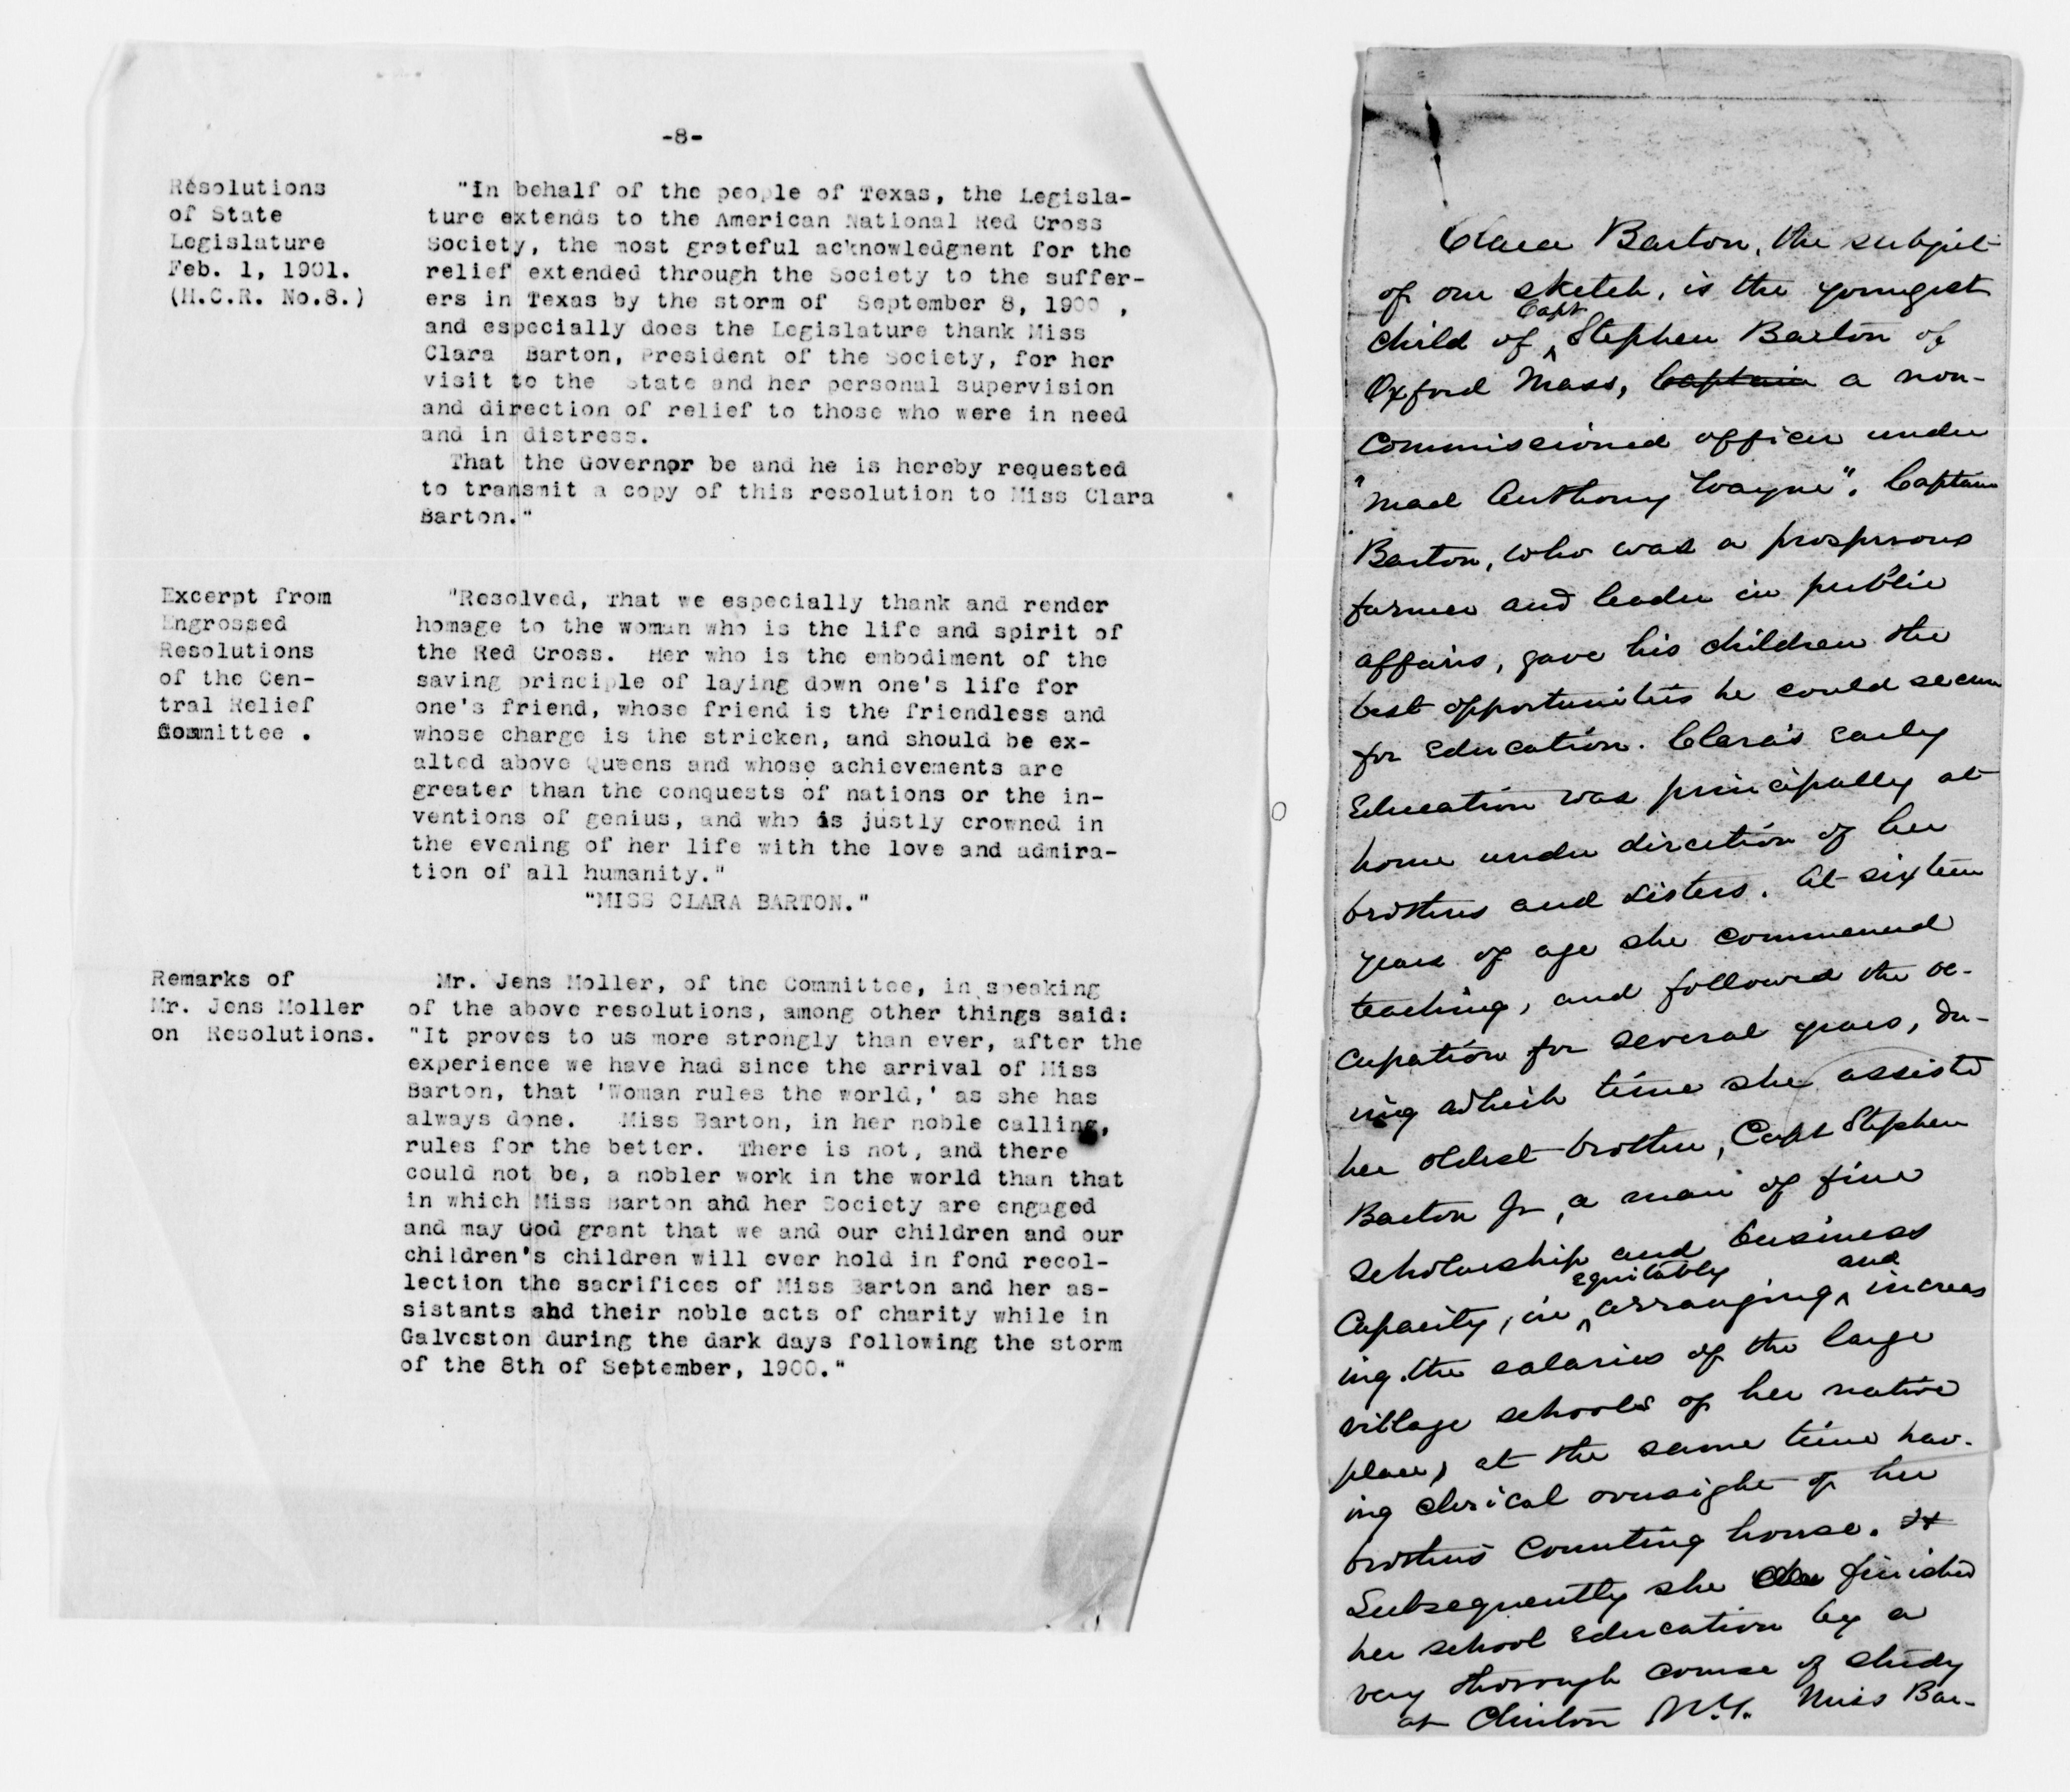 -8-
Resolutions
of State
Legislature
Feb. 1, 1901.
(H.C.R. No.8.)
"In behalf of the people of Texas, the Legisla-
ture extends to the American National Red Cross
Society, the most grateful acknowledgment for the
relief extended through the Society to the suffer-
ers in Texas by the storm of September 8, 1900 ,
and especially does the Legislature thank Miss
Clara Barton, President of the Society, for her
visit to the State and her personal supervision
and direction of relief to those who were in need
and in distress.
That the Governor be and he is hereby requested
to transmit a copy of this resolution to Miss Clara
Barton."
Excerpt from
Engrossed
Resolutions
of the Cen-
tral Relief
Committee .
"Resolved, That we especially thank and render
homage to the woman who is the life and spirit of
the Red Cross. Her who is the embodiment of the
saving principle of laying down one's life for
one's friend, whose friend is the friendless and
whose charge is the stricken, and should be ex-
alted above Queens and whose achievements are
greater than the conquests of nations or the in-
ventions of genius, and who is justly crowned in
the evening of her life with the love and admira-
tion of all humanity."
"MISS CLARA BARTON."
Remarks of
Mr. Jens Moller
on Resolutions.
Mr. Jens Moller, of the Committee, in speaking
of the above resolutions, among other things said:
"It proves to us more strongly than ever, after the
experience we have had since the arrival of Miss
Barton, that 'Woman rules the world,' as she has
always done. Miss Barton, in her noble calling,
rules for the better. There is not, and there
could not be, a nobler work in the world than that
in which Miss Barton ahd her Society are engaged
and may God grant that we and our children and our
children's children will ever hold in fond recol-
lection the sacrifices of Miss Barton and her as-
sistants ahd their noble acts of charity while in
Galveston during the dark days following the storm
of the 8th of September, 1900."
Clara Barton, the subject
of our sketch, is the youngest
child of Capt Stephen Barton of
Oxford Mass, Captain a non-
commissioned officer under
"Mad Anthony Wayne". Captain
Barton, who was a prosperous
farmer and leader in public
affairs, gave his children the
best opportunities he could secure
for Education. Clara's Early
Education was principally at
home under direction of her
brothers and sisters. At sixteen
years of age she commenced
teaching, and followed the oc-
cupation for several years, du-
ring which time she assisted
her oldest brother, Capt Stephen
Barton Jr, a man of fine
Scholarship and business
Capacity, in equitably arranging and increas
ing the salaries of the large
village schools of her native
place, at the same time hav-
ing clerical oversight of her
brothers Counting house. It
Subsequently she finished
her school Education by a
very thorough course of study
at Clinton N.Y. Miss Bar-